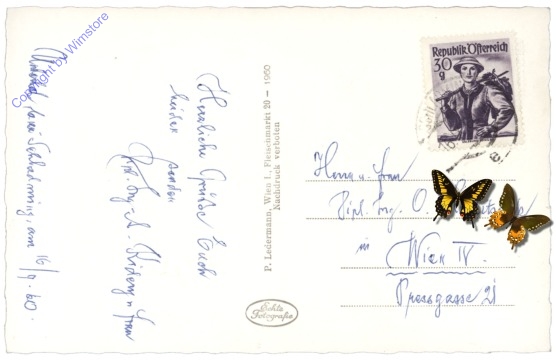 Copyright by Wimstore
Herzliche Grüsse Euch
beiden senden
Dipl. Ing.
u. Frau
am 16/9. 60.
P. Ledermann, Wien I., Fleischmarkt 20 – 1960
Nachdruck verboten
Echte
Fotografie
Republik Österreich
30
g
Herrn u. Frau
Dipl. Ing. O.
in
Wien IV.
Pressgasse 21